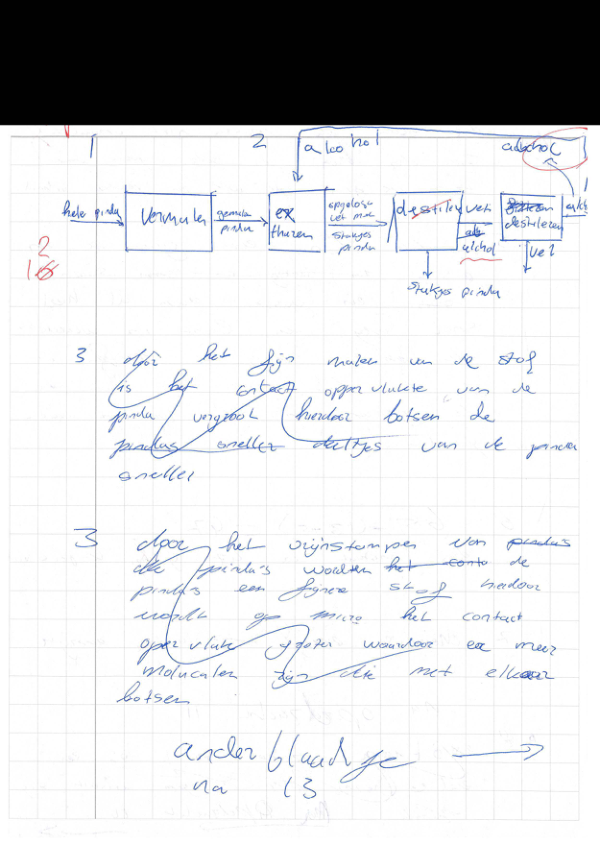 1
2
alcohol
alcohol
hele pinda
vermalen
gemale
pinda
ex
tharen
opgelose
vet met
stukjes
pinda
destiler
vet
alchol
destileren
vet
stukjes pinda
2
16
3 door het fijn malen van de stof
is het contact oppervlukte van de
pinda vergroot hierdoor botsen de
pindas sneller deeltjes van de pinda
sneller
3 door het vijnstampen von pindas
die pinda's worden het conta de
pindas een fijnere stof hierdoor
wordt op micro het contact
oper vlakte groter waardoor er meer
moluculen zijn die met elkaar
botsen
ander blaadje
na 13